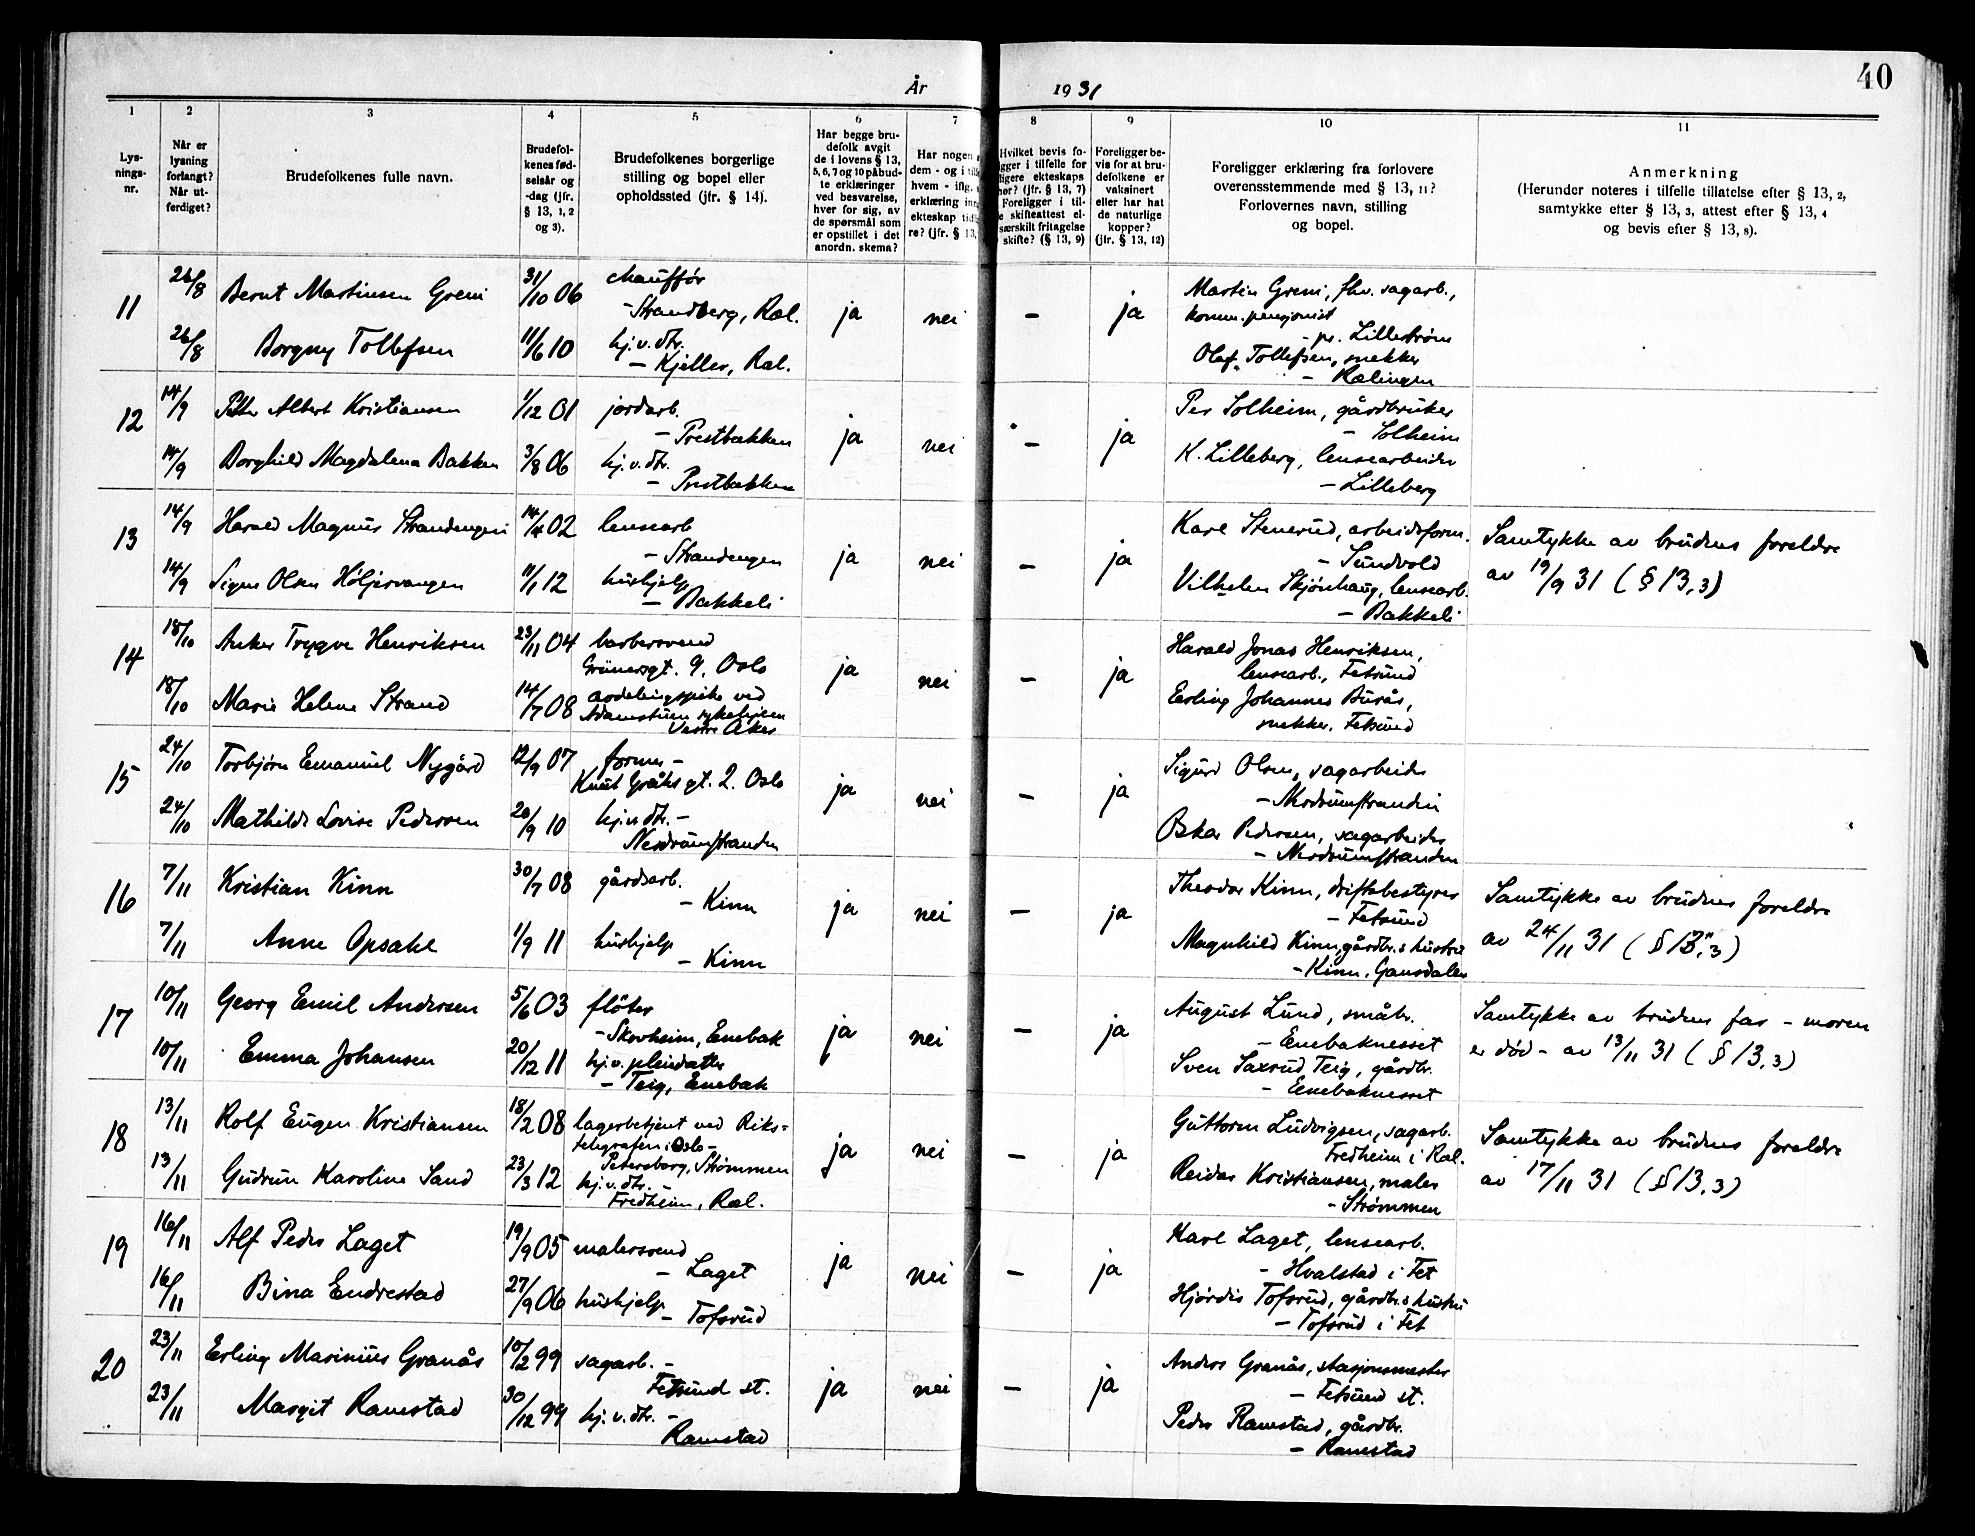 År 1931
40
1 2 3 4 5 6 7 8 9 10 11
Lys-
nings-
nr.
Når er
lysning
forlangt?
Når ut-
ferdiget?
Brudefolkenes fulle navn.
Brudefol-
kenes fød-
selsår og
-dag (jfr.
§ 13, 1, 2
og 3).
Brudefolkenes borgerlige
stilling og bopel eller
opholdssted (jfr. § 14).
Har begge bru-
defolk avgit
de i lovens § 13,
5, 6, 7 og 10 påbud-
te erklæringer
ved besvarelse,
hver for sig, av
de spørsmål som
er opstillet i det
anordn. skema?
Har nogen
dem - og i
hvem - iflg.
erklæring
ekteskap
re? (jfr. § 13,
Hvilket bevis fo-
gger i tilfelle for
ligere ekteskaps
hør? (jfr. § 13, 7)
Foreligger i til-
e skifteattest el-
særskilt fritagelse
skifte? (§ 13, 9)
Foreligger be-
vis for at bru-
defolkene er
vaksinert
eller har hat
de naturlige
kopper?
(jfr. § 13, 12)
Foreligger erklæring fra forlovere
overensstemmende med § 13, 11?
Forlovernes navn, stilling
og bopel.
Anmerkning
(Herunder noteres i tilfelle tillatelse efter § 13, 2,
samtykke efter § 13, 3, attest efter § 13, 4
og bevis efter § 13, 8).
11
26/8 Bernt Martinsen Greni 31/10 06 chauffør
- Strandberg, Ræl.
26/8 Borgny Tollefsen 11/6 10 hj.v.dtr.
- Kjeller, Ræl.
ja nei - ja
Martin Greni, fhv. sagarb.,
komm. pensjonist
- pr. Lillestrøm
Olaf Tollefsen, snekker
- Rælingen
12
14/9 Peder Albert Kristiansen 1/12 01 jordarb.
- Prestbakken
14/9 Borghild Magdalena Bakken 3/8 06 hj.v.dtr.
- Prestbakken
ja nei - ja
Per Solheim, gårdbruker
- Solheim
K. Lilleberg, lensearbeider
- Lilleberg
13
14/9 Harald Magnus Strandengen 14/4 02 lensearb
- Strandengen
14/9 Signe Olsen Høljesvangen 11/1 12 hushjelp
- Bakkeli
ja nei - ja
Karl Stenerud, arbeidsform.
- Sundvold
Vilhelm Skjønhaug, lensearb.
- Bakkeli
Samtykke av brudens foreldre
av 19/9 31 (§ 13,3)
14
18/10 Anker Trygve Henriksen 23/11 04 barbersvend
Grünersgt. 9, Oslo
18/10 Marie Helene Strand 14/7 08 avdelingspike ved
Adamstuen sykehjem
Vestre Aker
ja nei - ja
Harald Jonas Henriksen,
lensearb., Fetsund
Erling Johannes Burås,
snekker, Fetsund
15
24/10 Torbjørn Emanuel Nygård 12/9 07 former -
Knut Gråks gt. 2. Oslo
24/10 Mathilde Lovise Pedersen 20/9 10 hj.v.dtr. -
Nerdrumstranden
ja nei - ja
Sigurd Olsen, sagarbeider
- Nerdrumstranden
Oskar Pedersen, sagarbeider
- Nerdrumstranden
16
7/11 Kristian Kinn 30/7 08 gårdsarb.
- Kinn
7/11 Anne Opsahl 1/9 11 hushjelp
- Kinn
ja nei - ja
Theodor Kinn, driftsbestyrer
- Fetsund
Magnhild Kinn, gårdbr.s hustru
- Kinn, Gansdalen
Samtykke av brudens foreldre
av 24/11 31 (§ 13,3)
17
10/11 Georg Emil Andersen 5/6 03 fløter
- Skovheim, Enebak
10/11 Emma Johansen 20/12 11 hj.v. pleiedatter
- Teig, Enebak
ja nei - ja
August Lund, småbr.
- Enebaknesset
Sven Saxrud Teig, gårdbr.
- Enebaknesset
Samtykke av brudens far - moren
er død - av 13/11 31 (§ 13,3)
18
13/11 Rolf Eugen Kristiansen 18/2 08 lagerbetjent ved Riks-
telegrafen i Oslo -
Petersborg, Strømmen
13/11 Gudrun Karoline Sand 23/3 12 hj.v.dtr.
- Fredheim, Ræl.
ja nei - ja
Guttorm Ludvigsen, sagarb.
Fredheim i Ræl.
Reidar Kristiansen, maler
- Strømmen
Samtykke av brudens foreldre
av 17/11 31 (§ 13,3)
19
16/11 Alf Peder Laget 19/9 05 malersvend
- Laget
16/11 Bina Endrestad 27/9 06 hushjelp
- Tofsrud
ja nei - ja
Karl Laget, lensearb.
- Hvalstad i Fet
Hjørdis Tofsrud, gårdbr.s hustru
- Tofsrud i Fet
20
23/11 Erling Marinius Granås 10/2 99 sagarb. -
Fetsund st.
23/11 Margit Ramstad 30/12 99 hj.v.dtr. -
Ramstad
ja nei - ja
Anders Granås, stasjonsmester
- Fetsund st.
Peder Ramstad, gårdbr.
- Ramstad